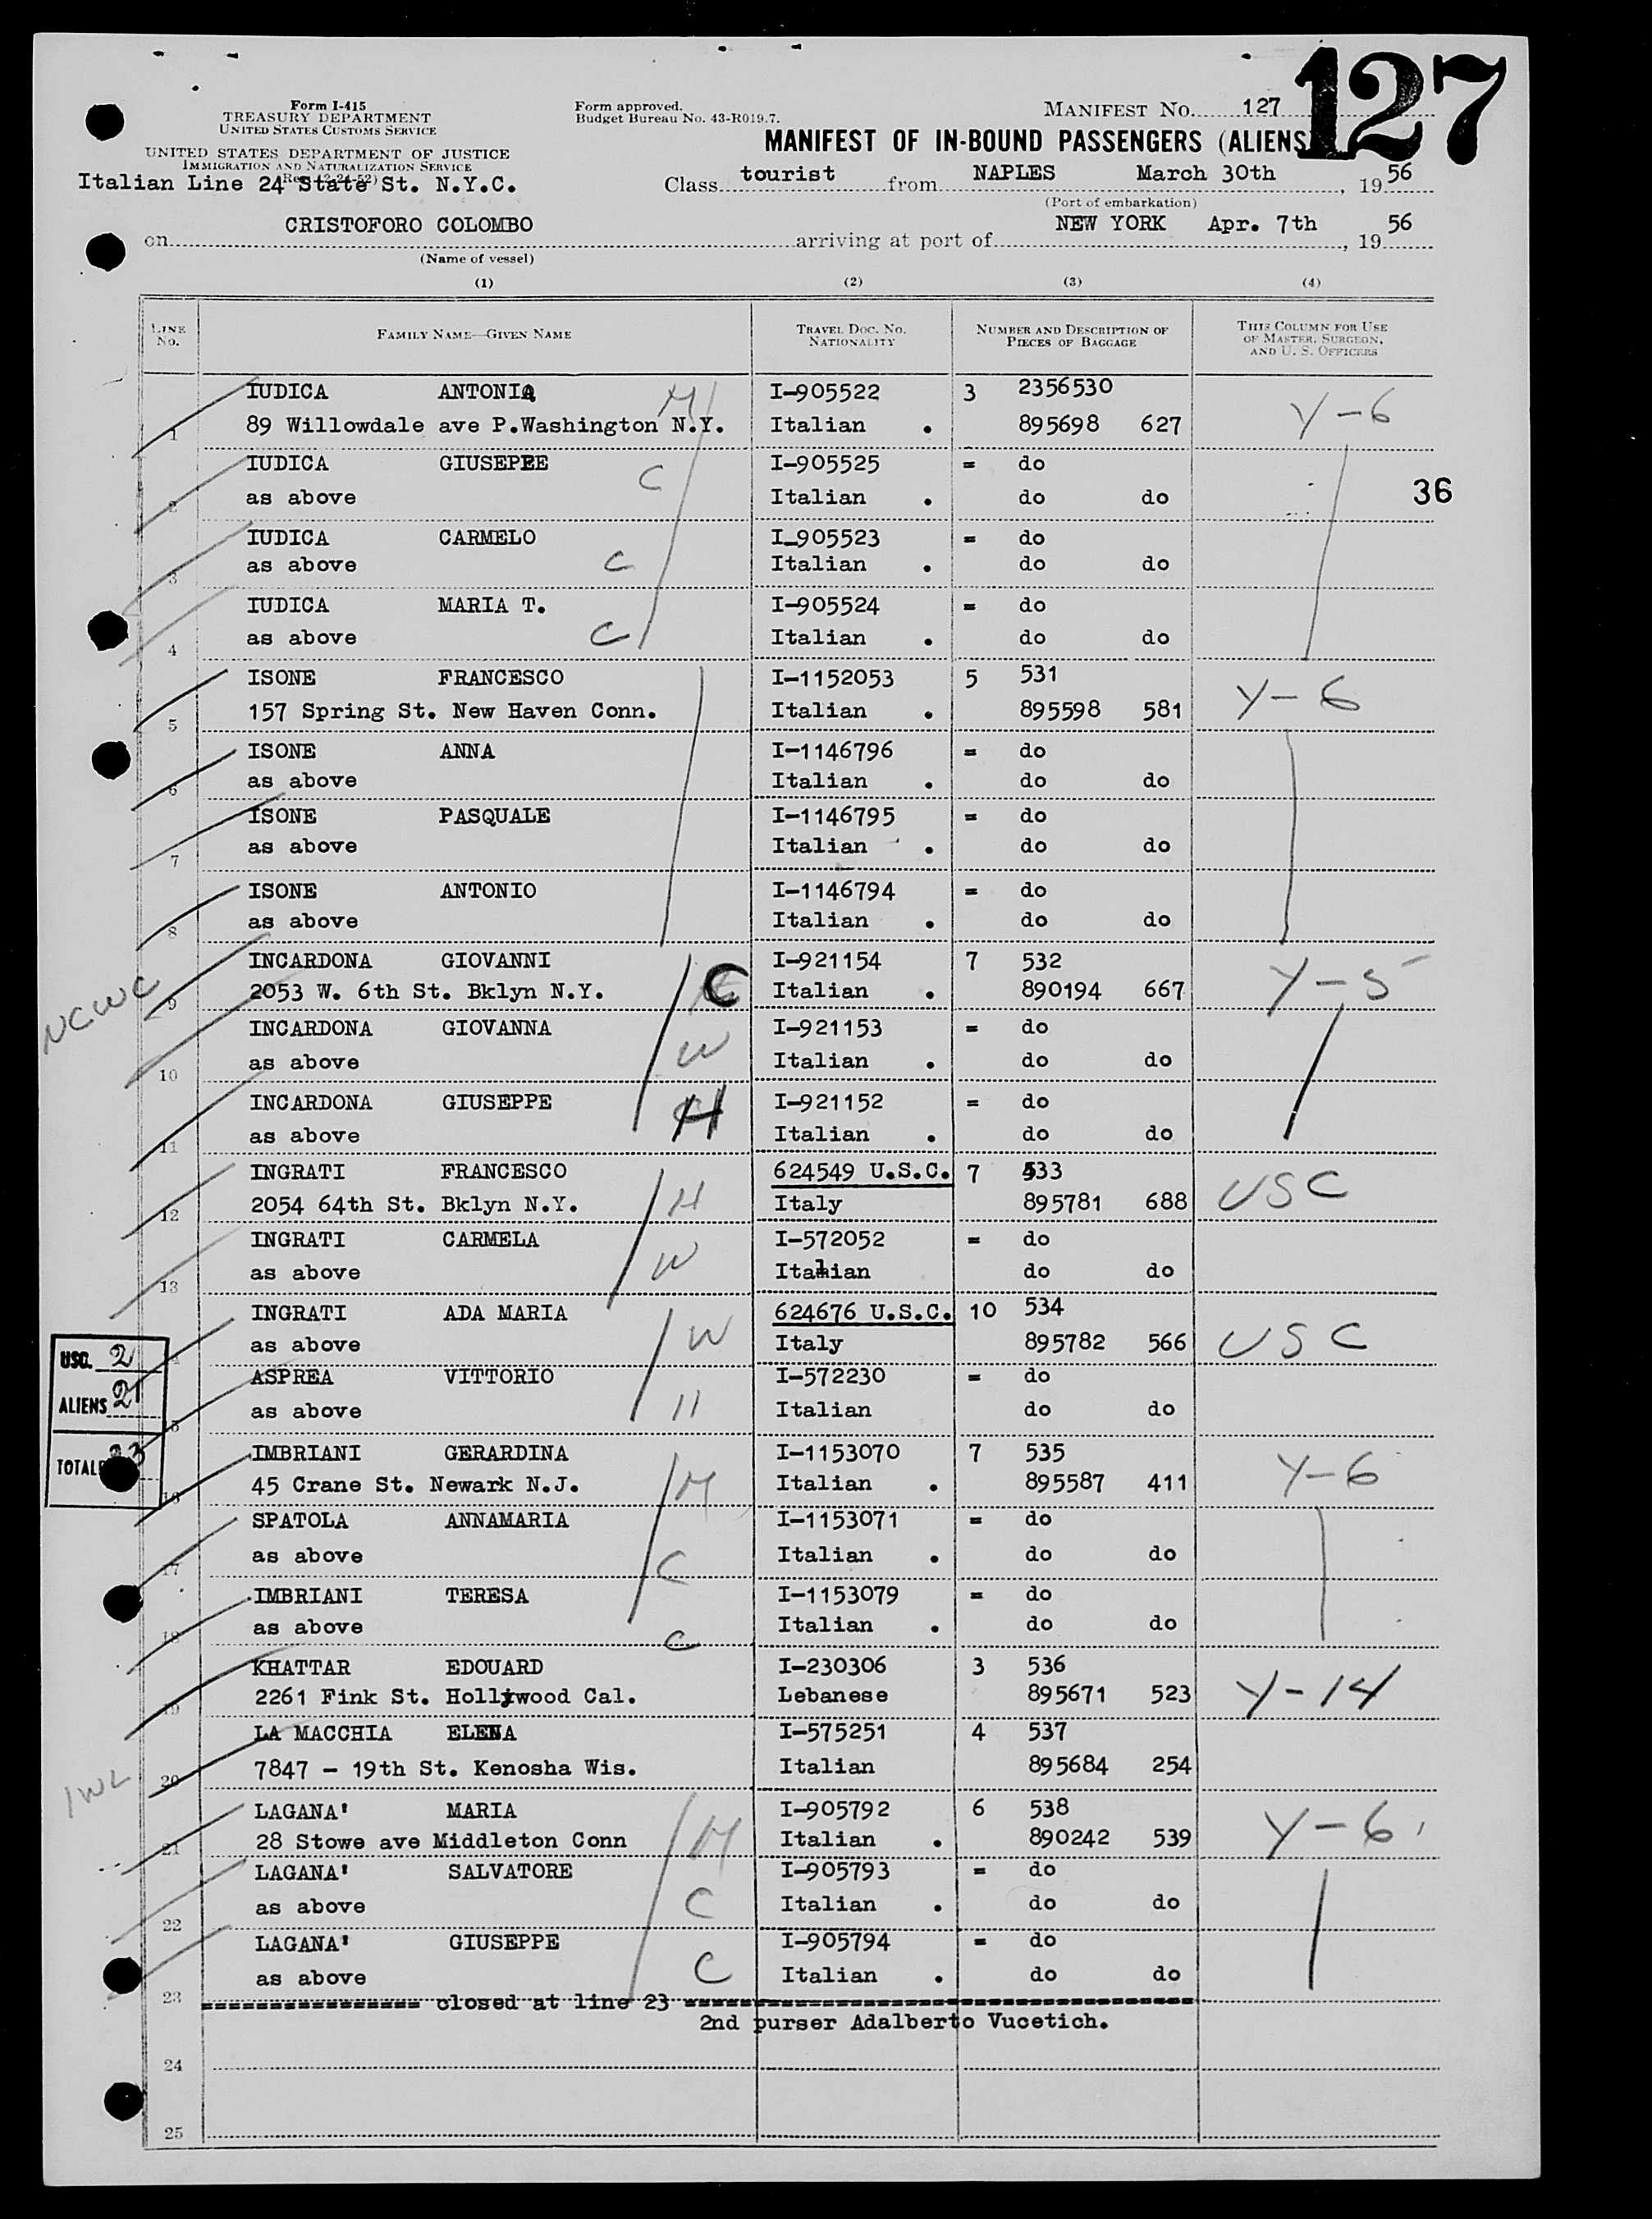 127
Form I-415
TREASURY DEPARTMENT
UNITED STATES CUSTOMS SERVICE
Form approved.
Budget Bureau No. 43-R019.7.
MANIFEST No. 127
UNITED STATES DEPARTMENT OF JUSTICE
IMMIGRATION AND NATURALIZATION SERVICE
MANIFEST OF IN-BOUND PASSENGERS (ALIENS
Italian Line 24 State St. N.Y.C.
Class tourist from NAPLES March 30th, 1956
(Port of embarkation)
on CRISTOFORO COLOMBO arriving at port of NEW YORK Apr. 7th, 1956
(Name of vessel)
(1) (2) (3) (4)
LINE No. FAMILY NAME—GIVEN NAME TRAVEL DOC. NO. NATIONALITY NUMBER AND DESCRIPTION OF PIECES OF BAGGAGE THIS COLUMN FOR USE OF MASTER, SURGEON, AND U. S. OFFICERS
IUDICA ANTONIA M I-905522 3 2356530 Y-6
1 89 Willowdale ave P.Washington N.Y. Italian . 895698 627
IUDICA GIUSEPPE C I-905525 = do
2 as above Italian . do do 36
IUDICA CARMELO I-905523 = do
3 as above C Italian . do do
IUDICA MARIA T. I-905524 = do
4 as above C Italian . do do
ISONE FRANCESCO I-1152053 5 531 Y-6
5 157 Spring St. New Haven Conn. Italian . 895598 581
ISONE ANNA I-1146796 = do
6 as above Italian . do do
ISONE PASQUALE I-1146795 = do
7 as above Italian . do do
ISONE ANTONIO I-1146794 = do
8 as above Italian . do do
INCARDONA GIOVANNI C I-921154 7 532 Y-5
NCWC 9 2053 W. 6th St. Bklyn N.Y. Italian . 890194 667
INCARDONA GIOVANNA W I-921153 = do
10 as above Italian . do do
INCARDONA GIUSEPPE H I-921152 = do
11 as above Italian . do do
INGRATI FRANCESCO H 624549 U.S.C. 7 533 USC
12 2054 64th St. Bklyn N.Y. Italy 895781 688
INGRATI CARMELA W I-572052 = do
13 as above Italian do do
INGRATI ADA MARIA W 624676 U.S.C. 10 534 USC
as above Italy 895782 566
USC. 2
ALIENS 21
TOTAL 23
ASPREA VITTORIO H I-572230 = do
15 as above Italian do do
IMBRIANI GERARDINA M I-1153070 7 535 Y-6
16 45 Crane St. Newark N.J. Italian . 895587 411
SPATOLA ANNAMARIA I-1153071 = do
17 as above C Italian . do do
IMBRIANI TERESA I-1153079 = do
18 as above C Italian . do do
KHATTAR EDOUARD I-230306 3 536 Y-14
19 2261 Fink St. Hollywood Cal. Lebanese 895671 523
LA MACCHIA ELENA I-575251 4 537
20 7847 - 19th St. Kenosha Wis. Italian 895684 254
LAGANA' MARIA M I-905792 6 538 Y-6
21 28 Stowe ave Middleton Conn Italian . 890242 539
LAGANA' SALVATORE I-905793 = do
22 as above C Italian . do do
LAGANA' GIUSEPPE I-905794 = do
23 as above C Italian . do do
================ closed at line 23 ================
2nd purser Adalberto Vucetich.
24
25